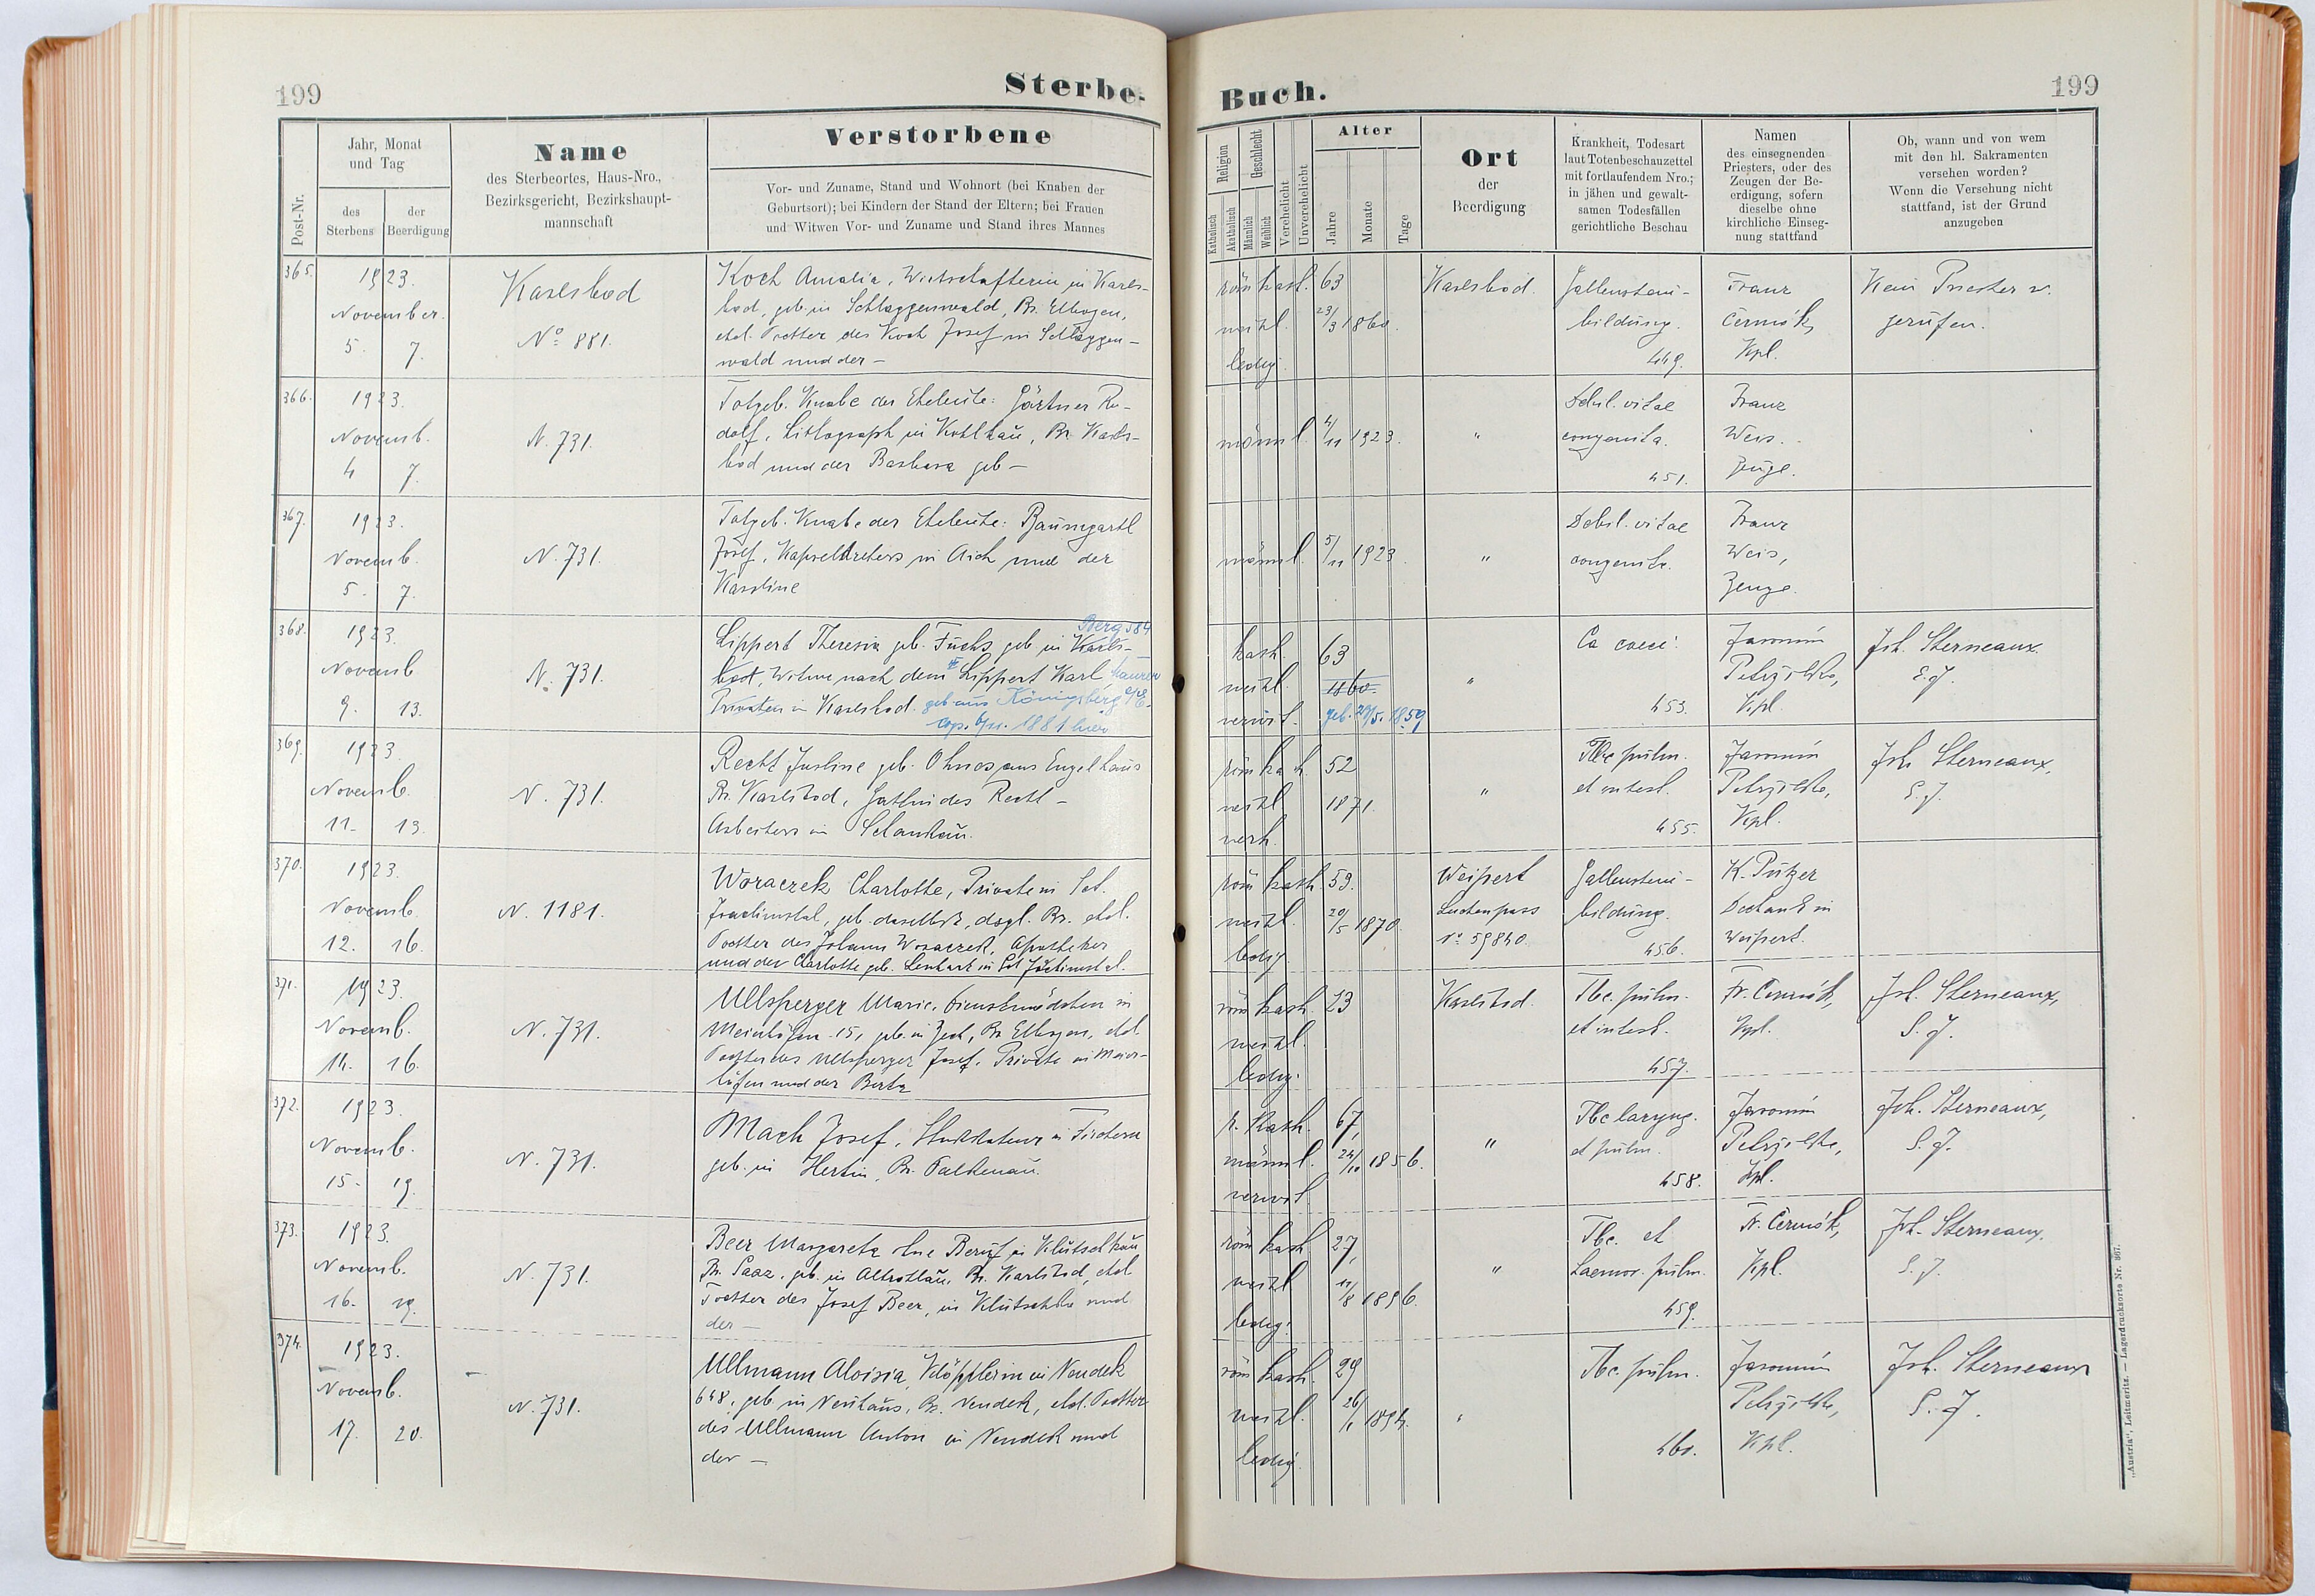 199
Sterbe-
Post-Nr.
Jahr, Monat
und Tag
des
Sterbens
der
Beerdigung
Name
des Sterbeortes, Haus-Nro.,
Bezirksgericht, Bezirkshaupt-
mannschaft
Verstorbene
Vor- und Zuname, Stand und Wohnort (bei Knaben der
Geburtsort); bei Kindern der Stand der Eltern; bei Frauen
und Witwen Vor- und Zuname und Stand ihres Mannes
365.
1923.
November.
5. 7.
Karlsbad
No 881.
Koch Amalia, Wirtschafterin in Karls-
bad, geb. in Schlaggenwald, Bz. Elbogen,
ehel. Tochter des Koch Josef in Schlaggen-
wald und der –
366.
1923.
Novemb.
4 7.
N. 731.
Totgeb. Knabe der Eheleute: Gärtner Ru-
dolf, Lithograph in Kohlhau, Bz. Karls-
bad und der Barbara geb –
367.
1923.
Novemb.
5. 7.
N. 731.
Totgeb. Knabe der Eheleute: Baumgartl
Josef, Kapseldrehers in Aich und der
Karoline
368.
1923.
Novemb
9. 13.
N. 731.
Berg 584
Lippert Theresia geb. Fuchs geb in Karls-
bad, Witwe nach dem Lippert Karl Maurer
Privaten in Karlsbad. geb. aus Königsberg a/E.
cop. 6/11. 1881 hier
369.
1923
Novemb.
11. 13.
N. 731.
Recht Justine geb. Ohnes aus Engelhaus
Bz. Karlsbad, Gattin des Recht –
Arbeiters in Schankau.
370.
1923.
Novemb
12. 16.
N. 1181.
Woraczek Charlotte, Private in Set.
Joachimstal, geb. daselbst, dsgl. Bz. ehel.
Tochter des Johann Woraczek, Apotheker
und der Charlotte geb. Lenhart in Set Joachimstal.
371.
1923.
Novemb.
14. 16.
N. 731.
Ullsperger Marie, Dienstmädchen in
Meierhöfen 15, geb. in Zech, Bz Elbogen, ehel.
Tochter des Ullsperger Josef, Private in Meier-
höfen und der Berta
372.
1923.
Novemb.
15. 19.
N. 731.
Mach Josef, Stukkateur in Fischern
geb. in Bz. Falkenau.
373.
1923.
Novemb.
16. 19.
N. 731.
Beer Margareta ohne Beruf in Klutschkau
Bz. Saaz, geb. in Altrohlau, Bz. Karlsbad, ehel
Tochter des Josef Beer, in und
der –
374.
1923.
Novemb.
17. 20.
N. 731.
Ullmann Aloisia, Klöpplerin in Neudek
648, geb in Neuhaus, Bz. Neudek, ehel. Tochter
des Ullmann Anton in Neudek und
der –
Buch.
199
Religion
Katholisch
Akatholisch
Geschlecht
Männlich
Weiblich
Verehelicht
Unverehelicht
Alter
Jahre
Monate
Tage
Ort
der
Beerdigung
Krankheit, Todesart
laut Totenbeschauzettel
mit fortlaufendem Nro.;
in jähen und gewalt-
samen Todesfällen
gerichtliche Beschau
Namen
des einsegnenden
Priesters, oder des
Zeugen der Be-
erdigung, sofern
dieselbe ohne
kirchliche Einseg-
nung stattfand
Ob, wann und von wem
mit den hl. Sakramenten
versehen worden?
Wenn die Versehung nicht
stattfand, ist der Grund
anzugeben
röm kath. 63
weibl. 23/3 1860.
ledig.
Karlsbad.
Gallenstein-
bildung.
449.
Franz
Čermák,
Kpl.
Kein Priester w.
gerufen.
männl. 4/11 1923.
"
Debil. vitae
congenita.
451.
Franz
Weis.
Zeuge.
männl. 5/11 1923.
"
Debil. vitae
congenita.
Franz
Weis,
Zeuge.
kath. 63
weibl. 1860.
verwit. geb. 29/5. 1859
"
Ca coeci.
453.
Jaromin
Kpl.
Joh. Sterneaux.
S. J.
röm kath 52
weibl 1871.
verh.
"
Tbc pulm.
et intest.
455.
Jaromin
Kpl.
Joh Sterneaux,
S. J.
röm kath 53.
weibl. 20/5 1870.
ledig
Weipert
Leichenpass
No 59840.
Gallenstein-
bildung.
456.
K. Putzer
Dechant in
Weipert.
röm kath. 23
weibl.
ledig.
Karlsbad.
Tbc. pulm.
et intest.
457.
Fr. Čermák,
Kpl.
Joh. Sterneaux,
S. J.
r. kath. 67,
männl. 24/10 1856.
verwit.
"
Tbc laryng.
et pulm.
458.
Jaromin
Kpl.
Joh. Sterneaux,
S. J.
röm kath 27,
weibl 11/8 1896.
ledig.
"
Tbc. et
Haemor. pulm.
459.
Fr. Čermák,
Kpl.
Joh. Sterneaux.
S. J.
röm kath. 29
weibl. 26/1 1894.
ledig.
"
Tbc. pulm.
460.
Jaromin
Kpl.
Joh. Sterneaux
S. J.
„Austria“, Leitmeritz. — Lagerdrucksorte Nr. 867.